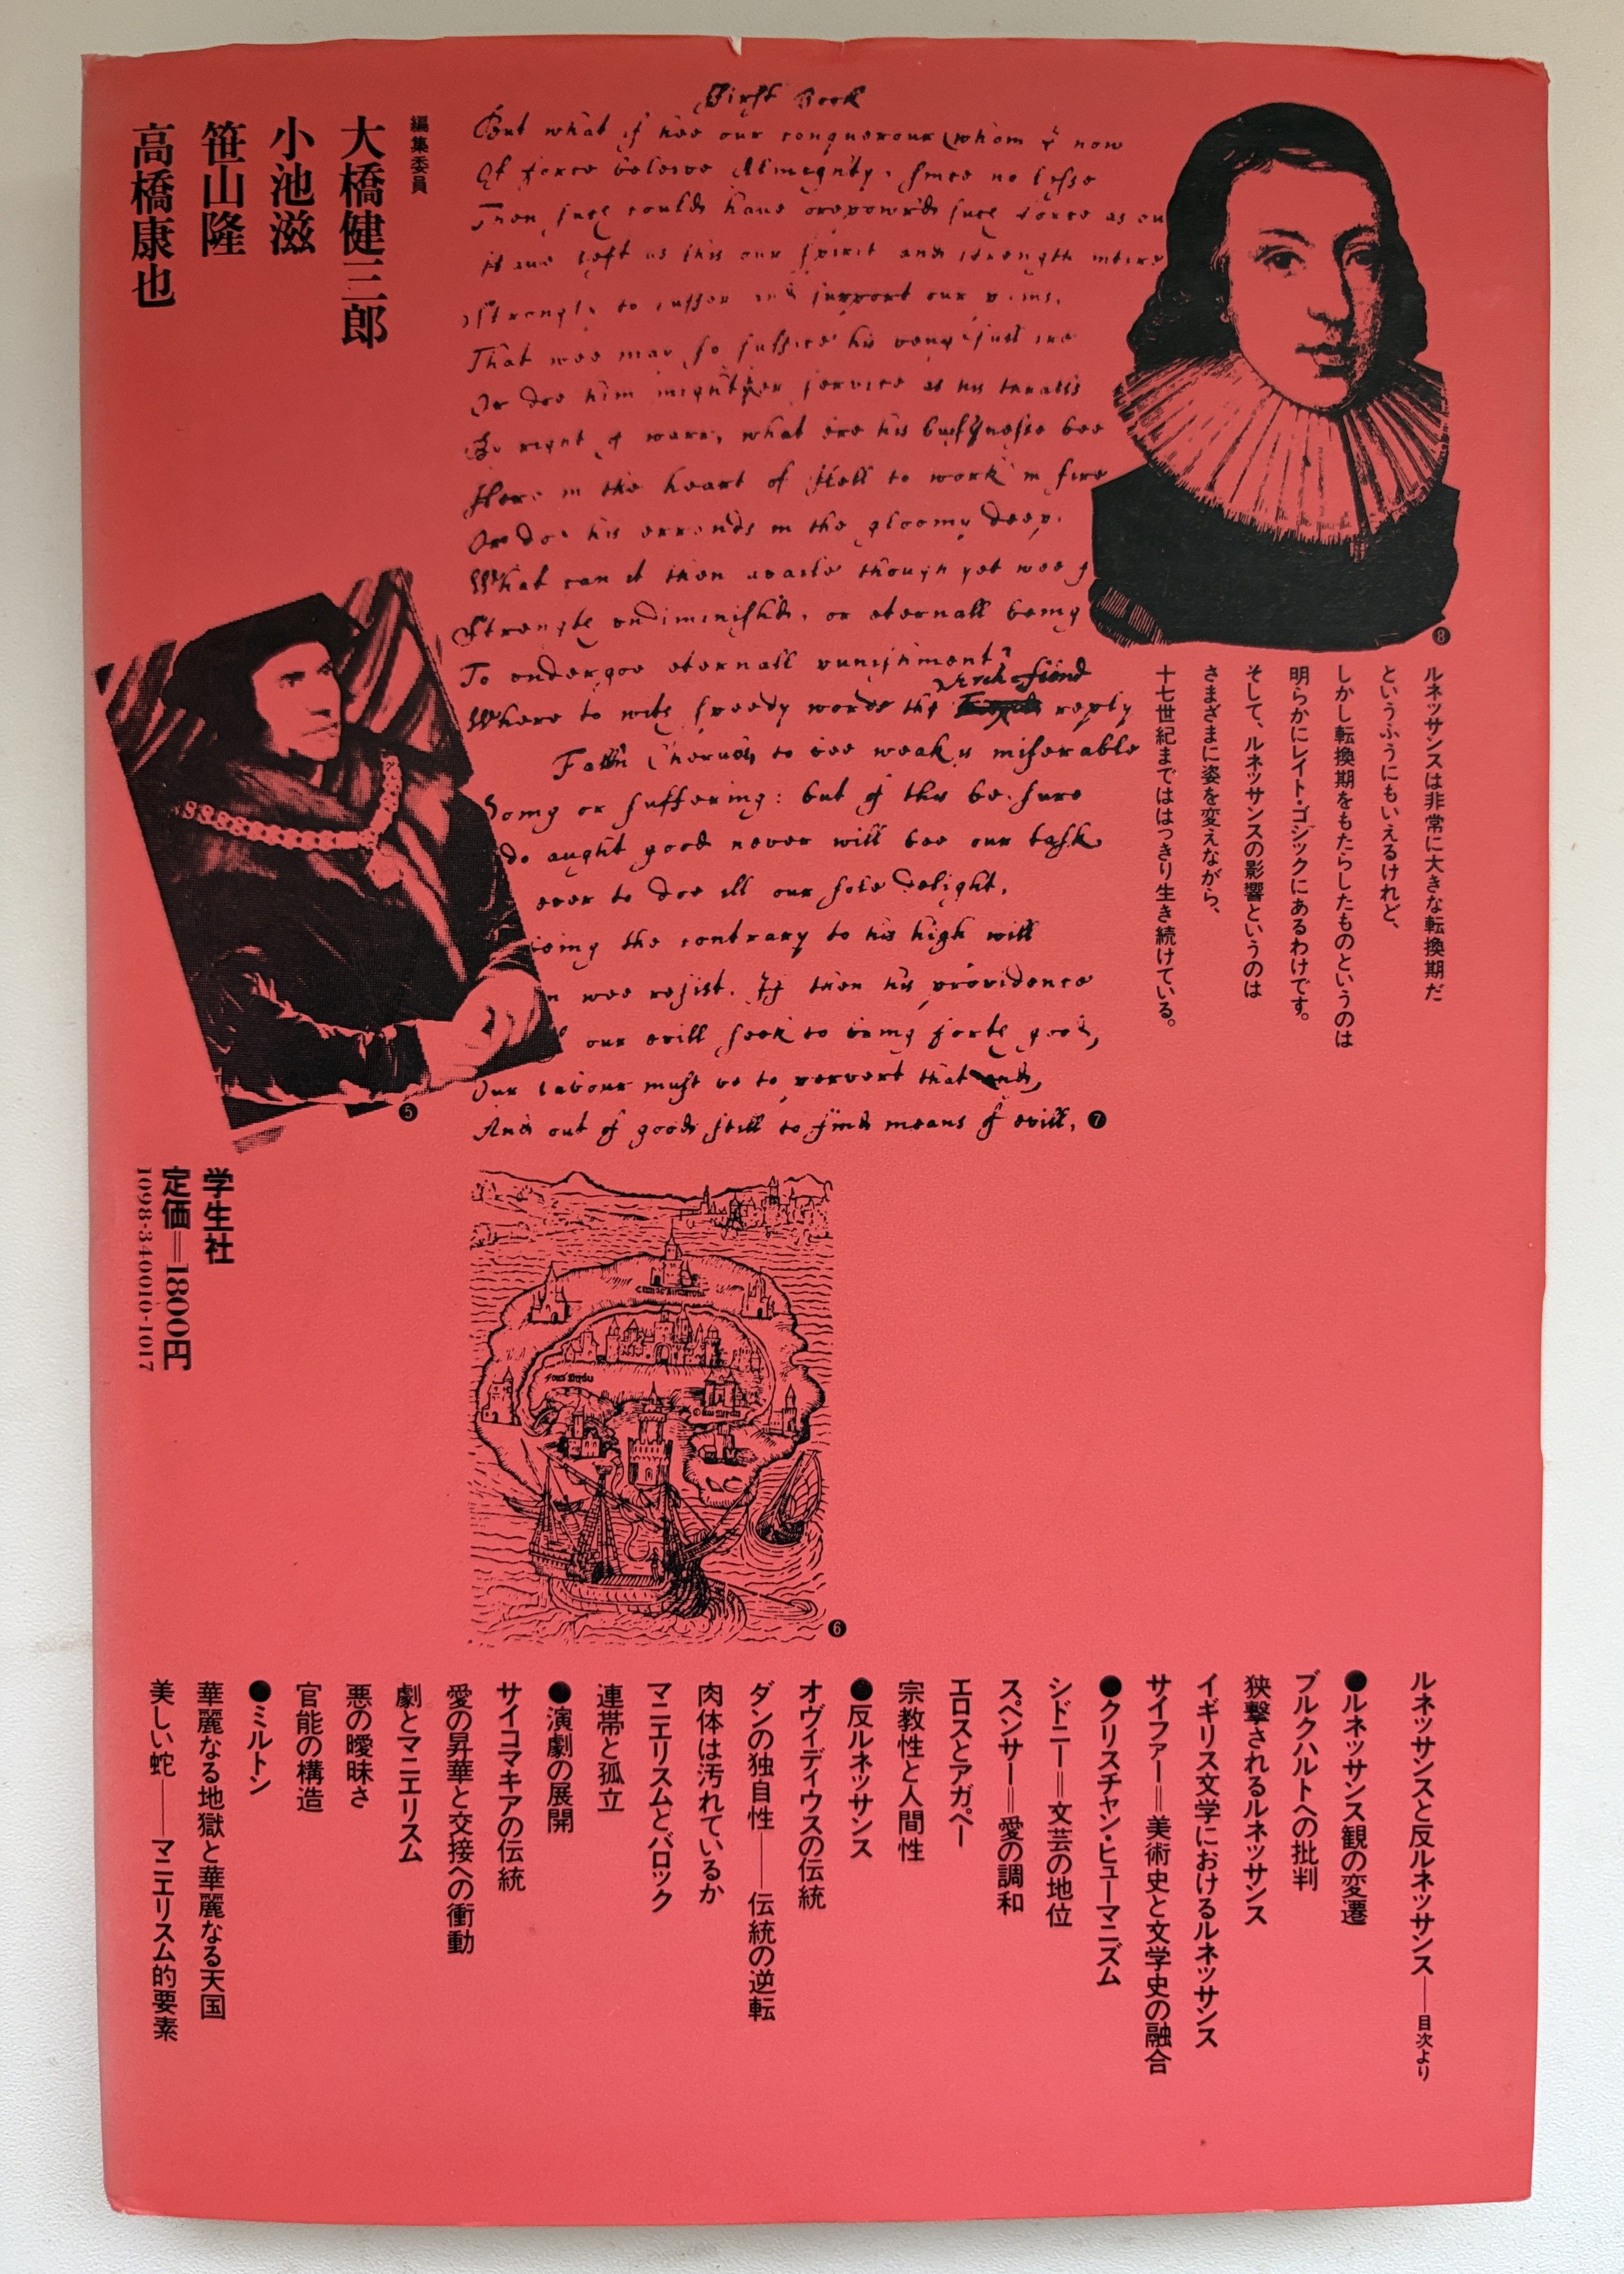 First Book
But what if hee our conquerour (whom I now
Of force beleive Almighty, since no lesse
Then such could have orepow'rd such force as
Have left us this our spirit and strength intire
Strongly to suffer and support our pains,
That wee may so suffice his vengefull ire
Or doe him mightier service as his thralls
By right of warr, what ere his busyness bee
Here in the heart of Hell to work in fire
Or doe his errands in the gloomy deep.
What can it then availe though yet wee
Strength undiminisht, or eternall being
To undergoe eternall punishment?
Archfiend
Whereto with speedy words the reply
Falln Cherub, to bee weak is miserable
Doing or suffering: but of this be sure
do aught good never will bee our task
ever to doe ill our sole delight,
being the contrary to his high will
wee resist. If then his providence
our evill seek to bring forth good,
Our labour must be to pervert that end,
And out of good still to find means of evill,
❼
❽
ルネッサンスは非常に大きな転換期だ
というふうにもいえるけれど、
しかし転換期をもたらしたものというのは
明らかにレイト・ゴシックにあるわけです。
そして、ルネッサンスの影響というのは
さまざまに姿を変えながら、
十七世紀まではっきり生き続けている。
編集委員
大橋健三郎
小池滋
笹山隆
高橋康也
❺
学生社
定価=1800円
1098-340010-1017
❻
ルネッサンスと反ルネッサンス——目次より
●ルネッサンス観の変遷
ブルクハルトへの批判
狭撃されるルネッサンス
イギリス文学におけるルネッサンス
サイファー=美術史と文学史の融合
●クリスチャン・ヒューマニズム
シドニー=文芸の地位
スペンサー=愛の調和
エロスとアガペー
宗教性と人間性
●反ルネッサンス
オヴィディウスの伝統
ダンの独自性——伝統の逆転
肉体は汚れているか
マニエリスムとバロック
連帯と孤立
●演劇の展開
サイコマキアの伝統
愛の昇華と交接への衝動
劇とマニエリスム
悪の曖昧さ
官能の構造
●ミルトン
華麗なる地獄と華麗なる天国
美しい蛇——マニエリスム的要素